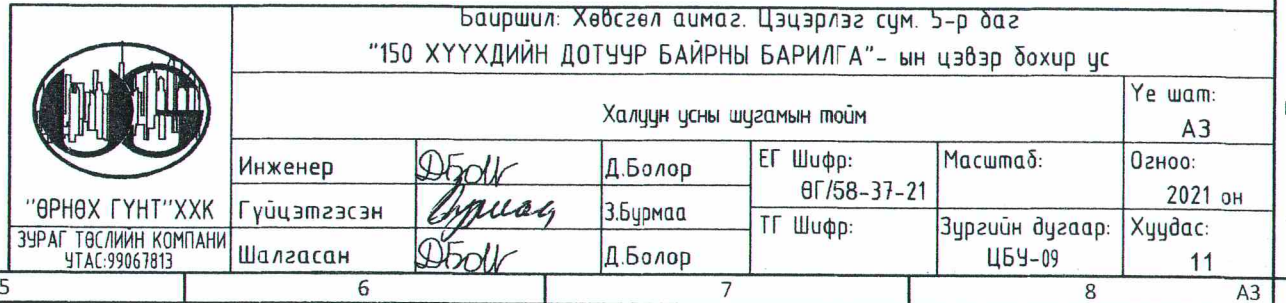 Байршил: Хөвсгөл аймаг. Цэцэрлэг сум. 5-р баг
"150 ХҮҮХДИЙН ДОТУУР БАЙРНЫ БАРИЛГА"- ын цэвэр бохир ус
Халуун усны шугамын тойм
Үе шат:
АЗ
"ӨРНӨХ ГҮНТ"ХХК
ЗУРАГ ТӨСЛИЙН КОМПАНИ
УТАС:99067813
Инженер
Д.Болор
Гүйцэтгэсэн
З.Бурмаа
Шалгасан
Д.Болор
ЕГ Шифр:
ӨГ/58-37-21
ТГ Шифр:
Масштаб:
Зургийн дугаар:
ЦБУ-09
Огноо:
2021 он
Хуудас:
11
5 6 7 8 A3